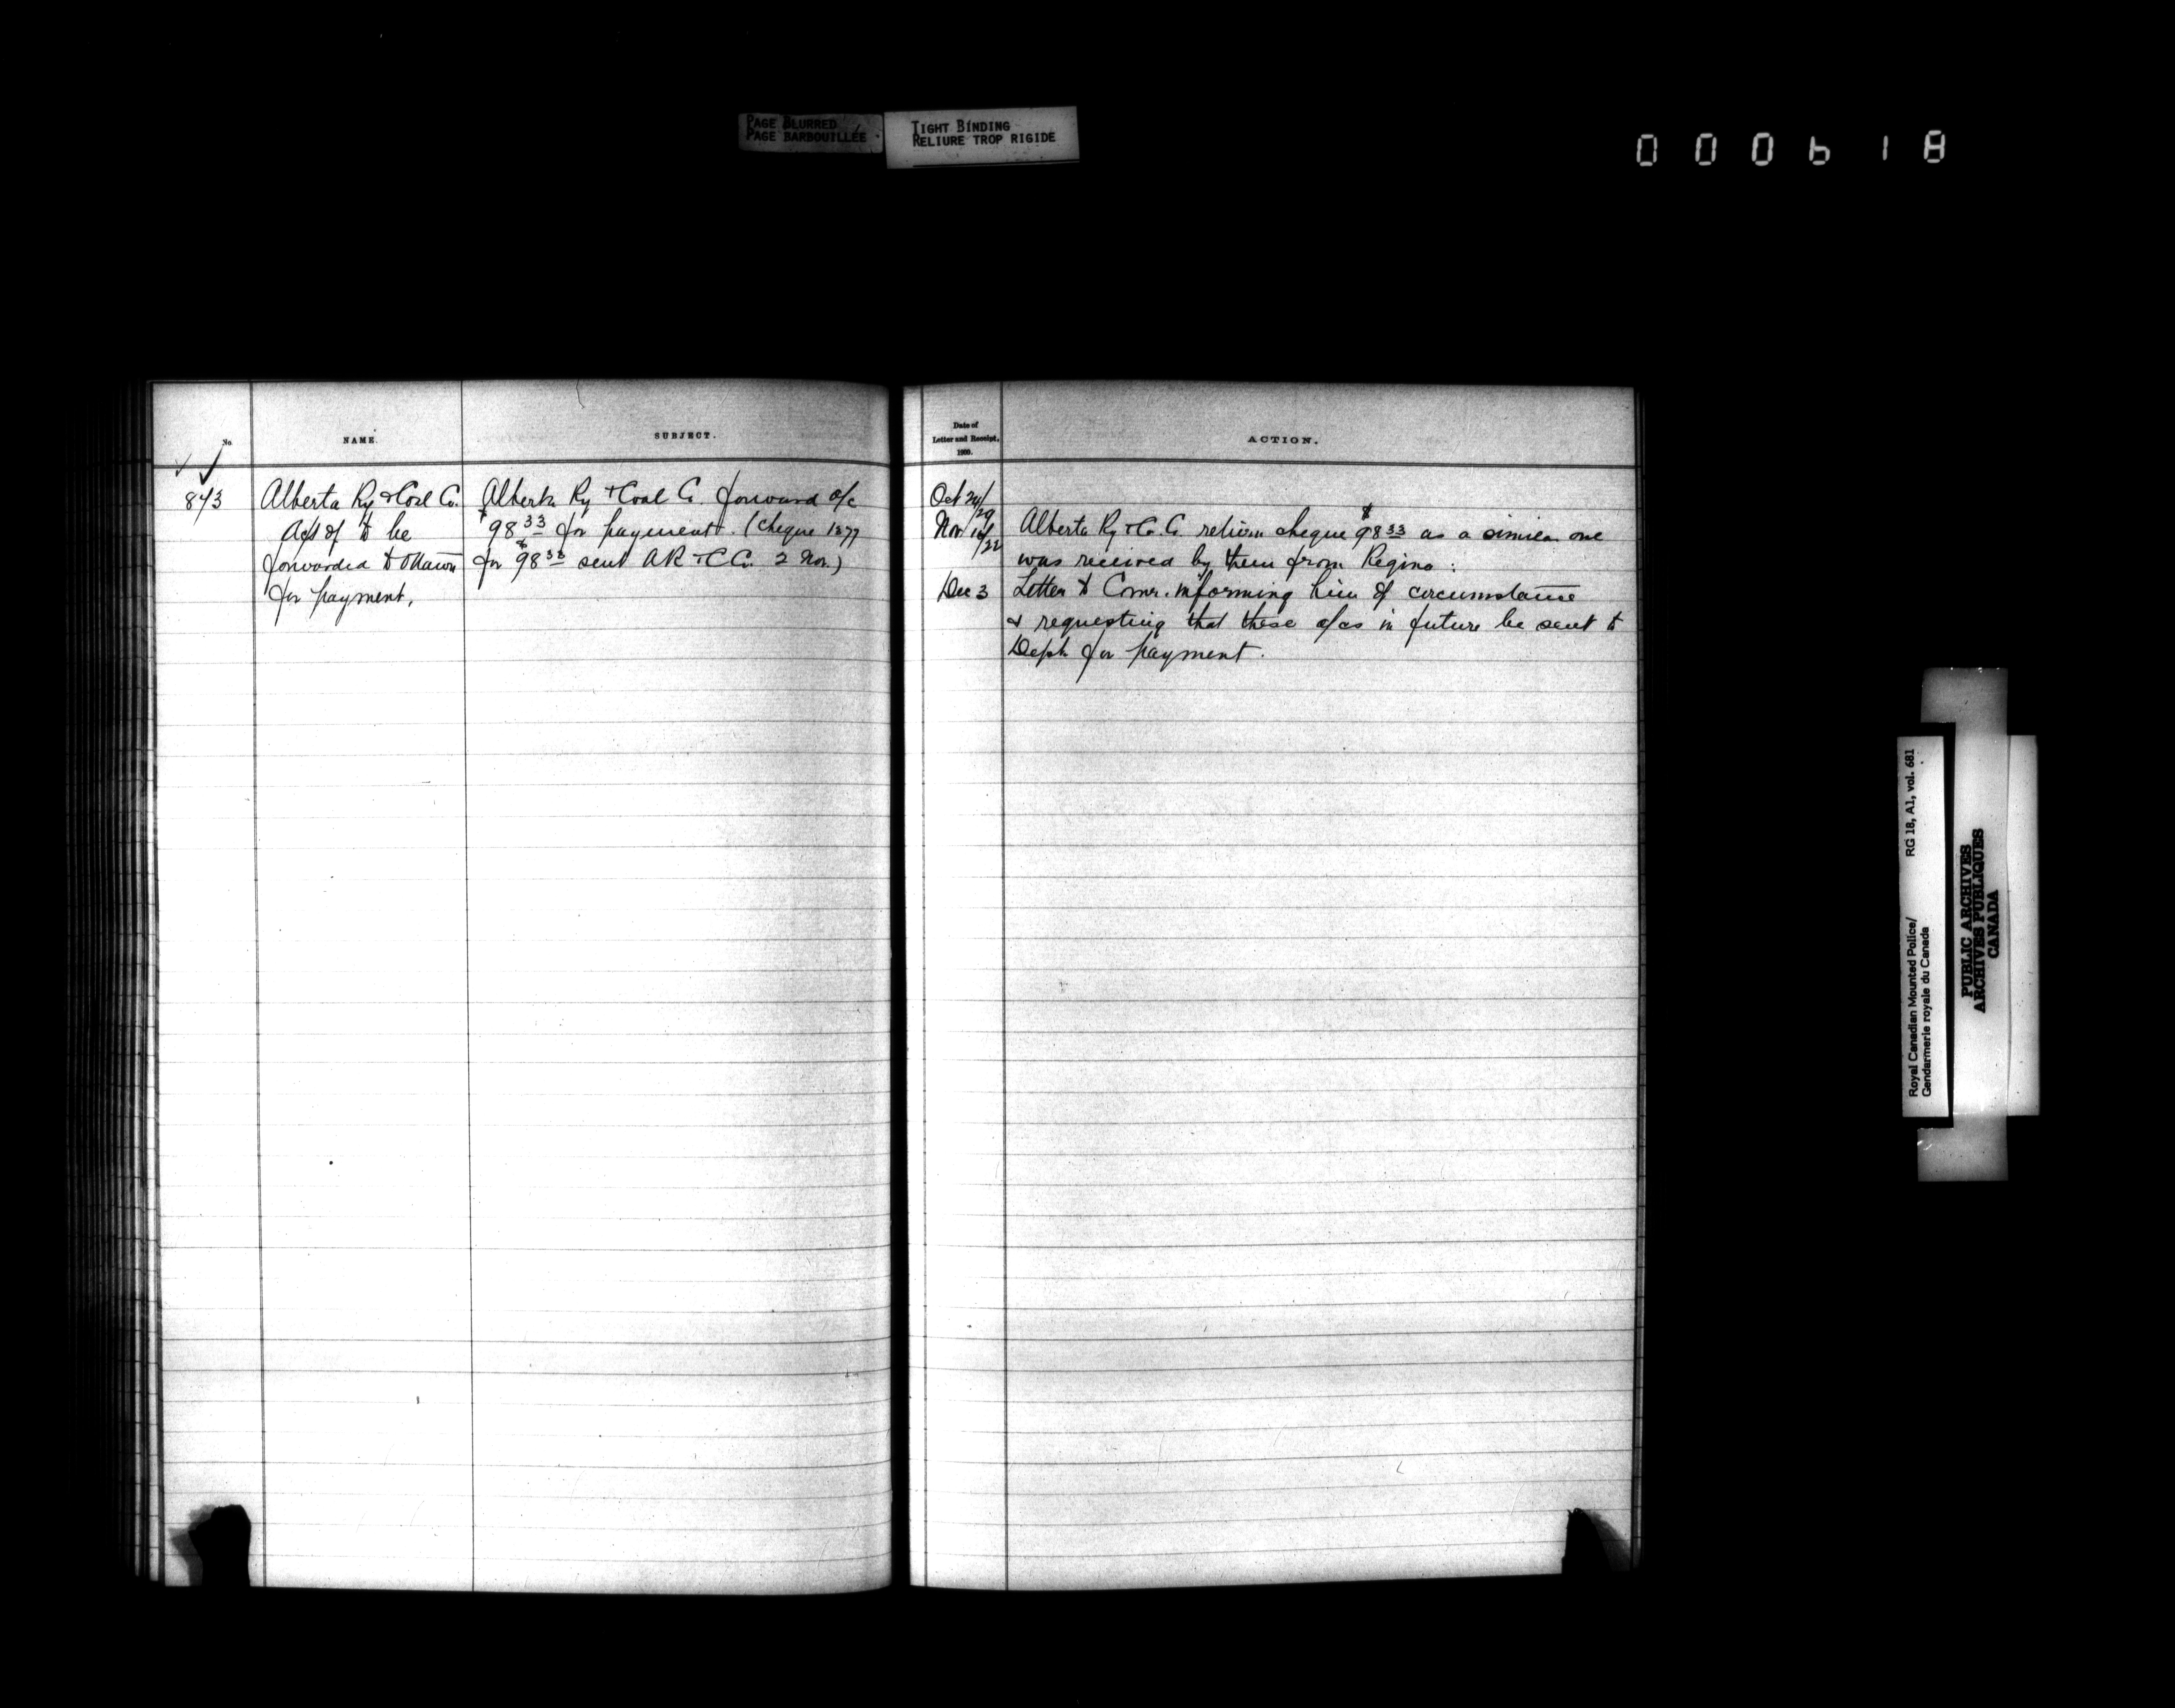 PAGE BLURRED
PAGE BARBOUILLÉE
TIGHT BINDING
RELIURE TROP RIGIDE
000618
No
NAME.
SUBJECT.
843
Alberta Ry & Coal Co.
Acts of to be
forwarded to Ottawa
for payment.
Alberta Ry & Coal Co. forward a/c
$98 33 for payment. (Cheque 1277
for $98 33 sent A R & C Co. 2 Nov.)
Date of
Letter and Receipt,
1900.
ACTION.
Oct 24/29
Nov 16/22
Alberta Ry & C. Co. return cheque $98 33 as a similar one
was received by them from Regina:
Dec 3
Letter to Comr. informing him of circumstance
& requesting that these a/cs in future be sent to
Dept for payment.
Royal Canadian Mounted Police/
Gendarmerie royale du Canada
RG 18, A1, vol. 681
PUBLIC ARCHIVES
ARCHIVES PUBLIQUES
CANADA